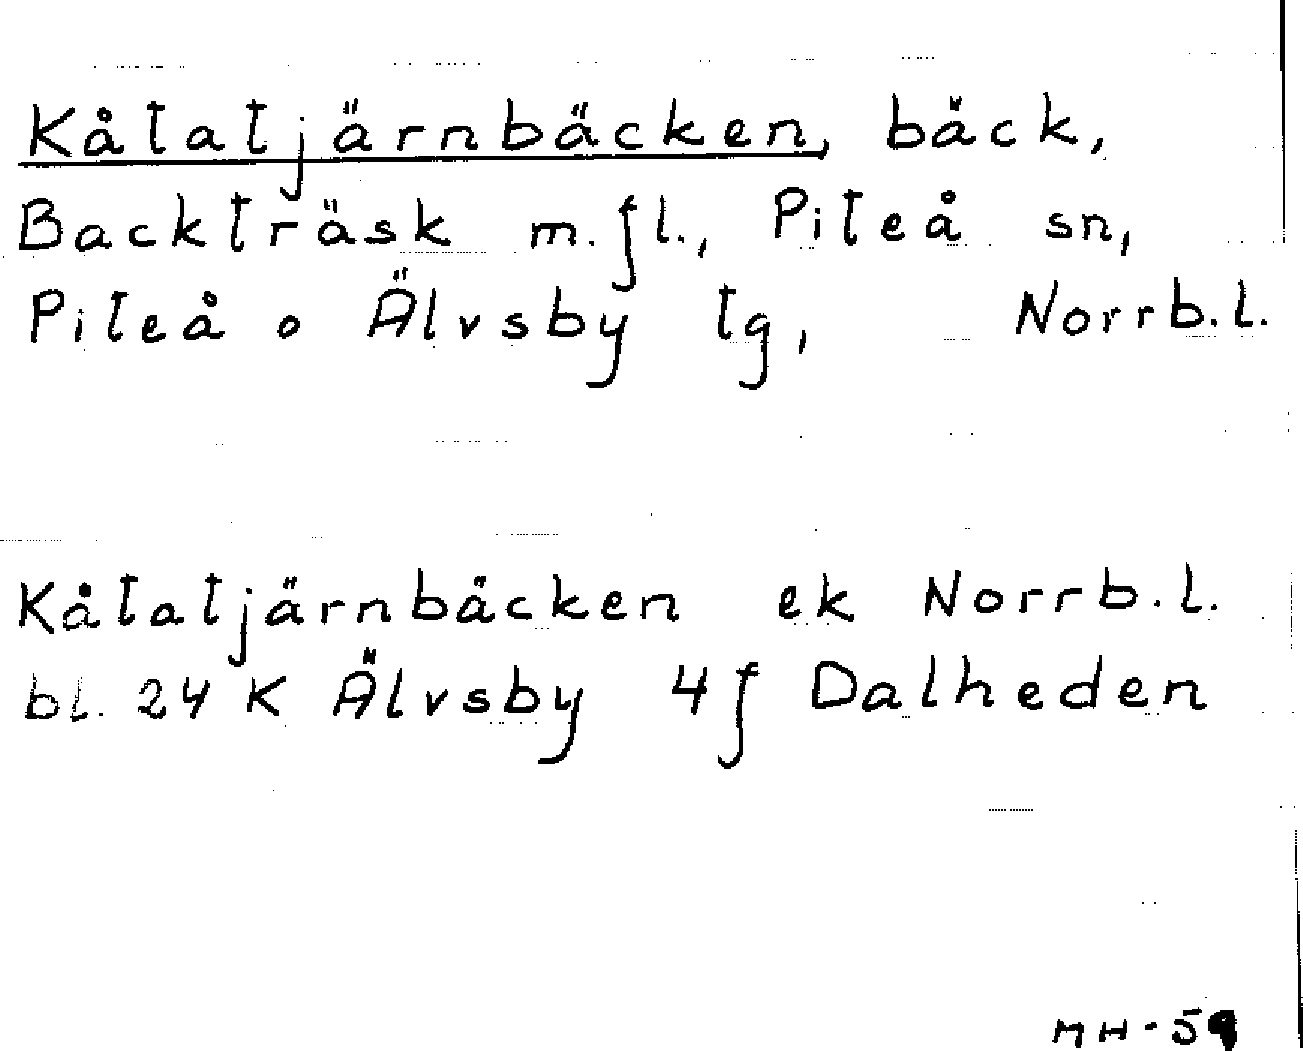 Kåtatjärnbäcken, bäck,
Backträsk m.fl., Piteå sn,
Piteå o Älvsby tg, Norrb.l.
Kåtatjärnbäcken ek Norrb.l.
bl. 24 K Älvsby 4f Dalheden
MH-59